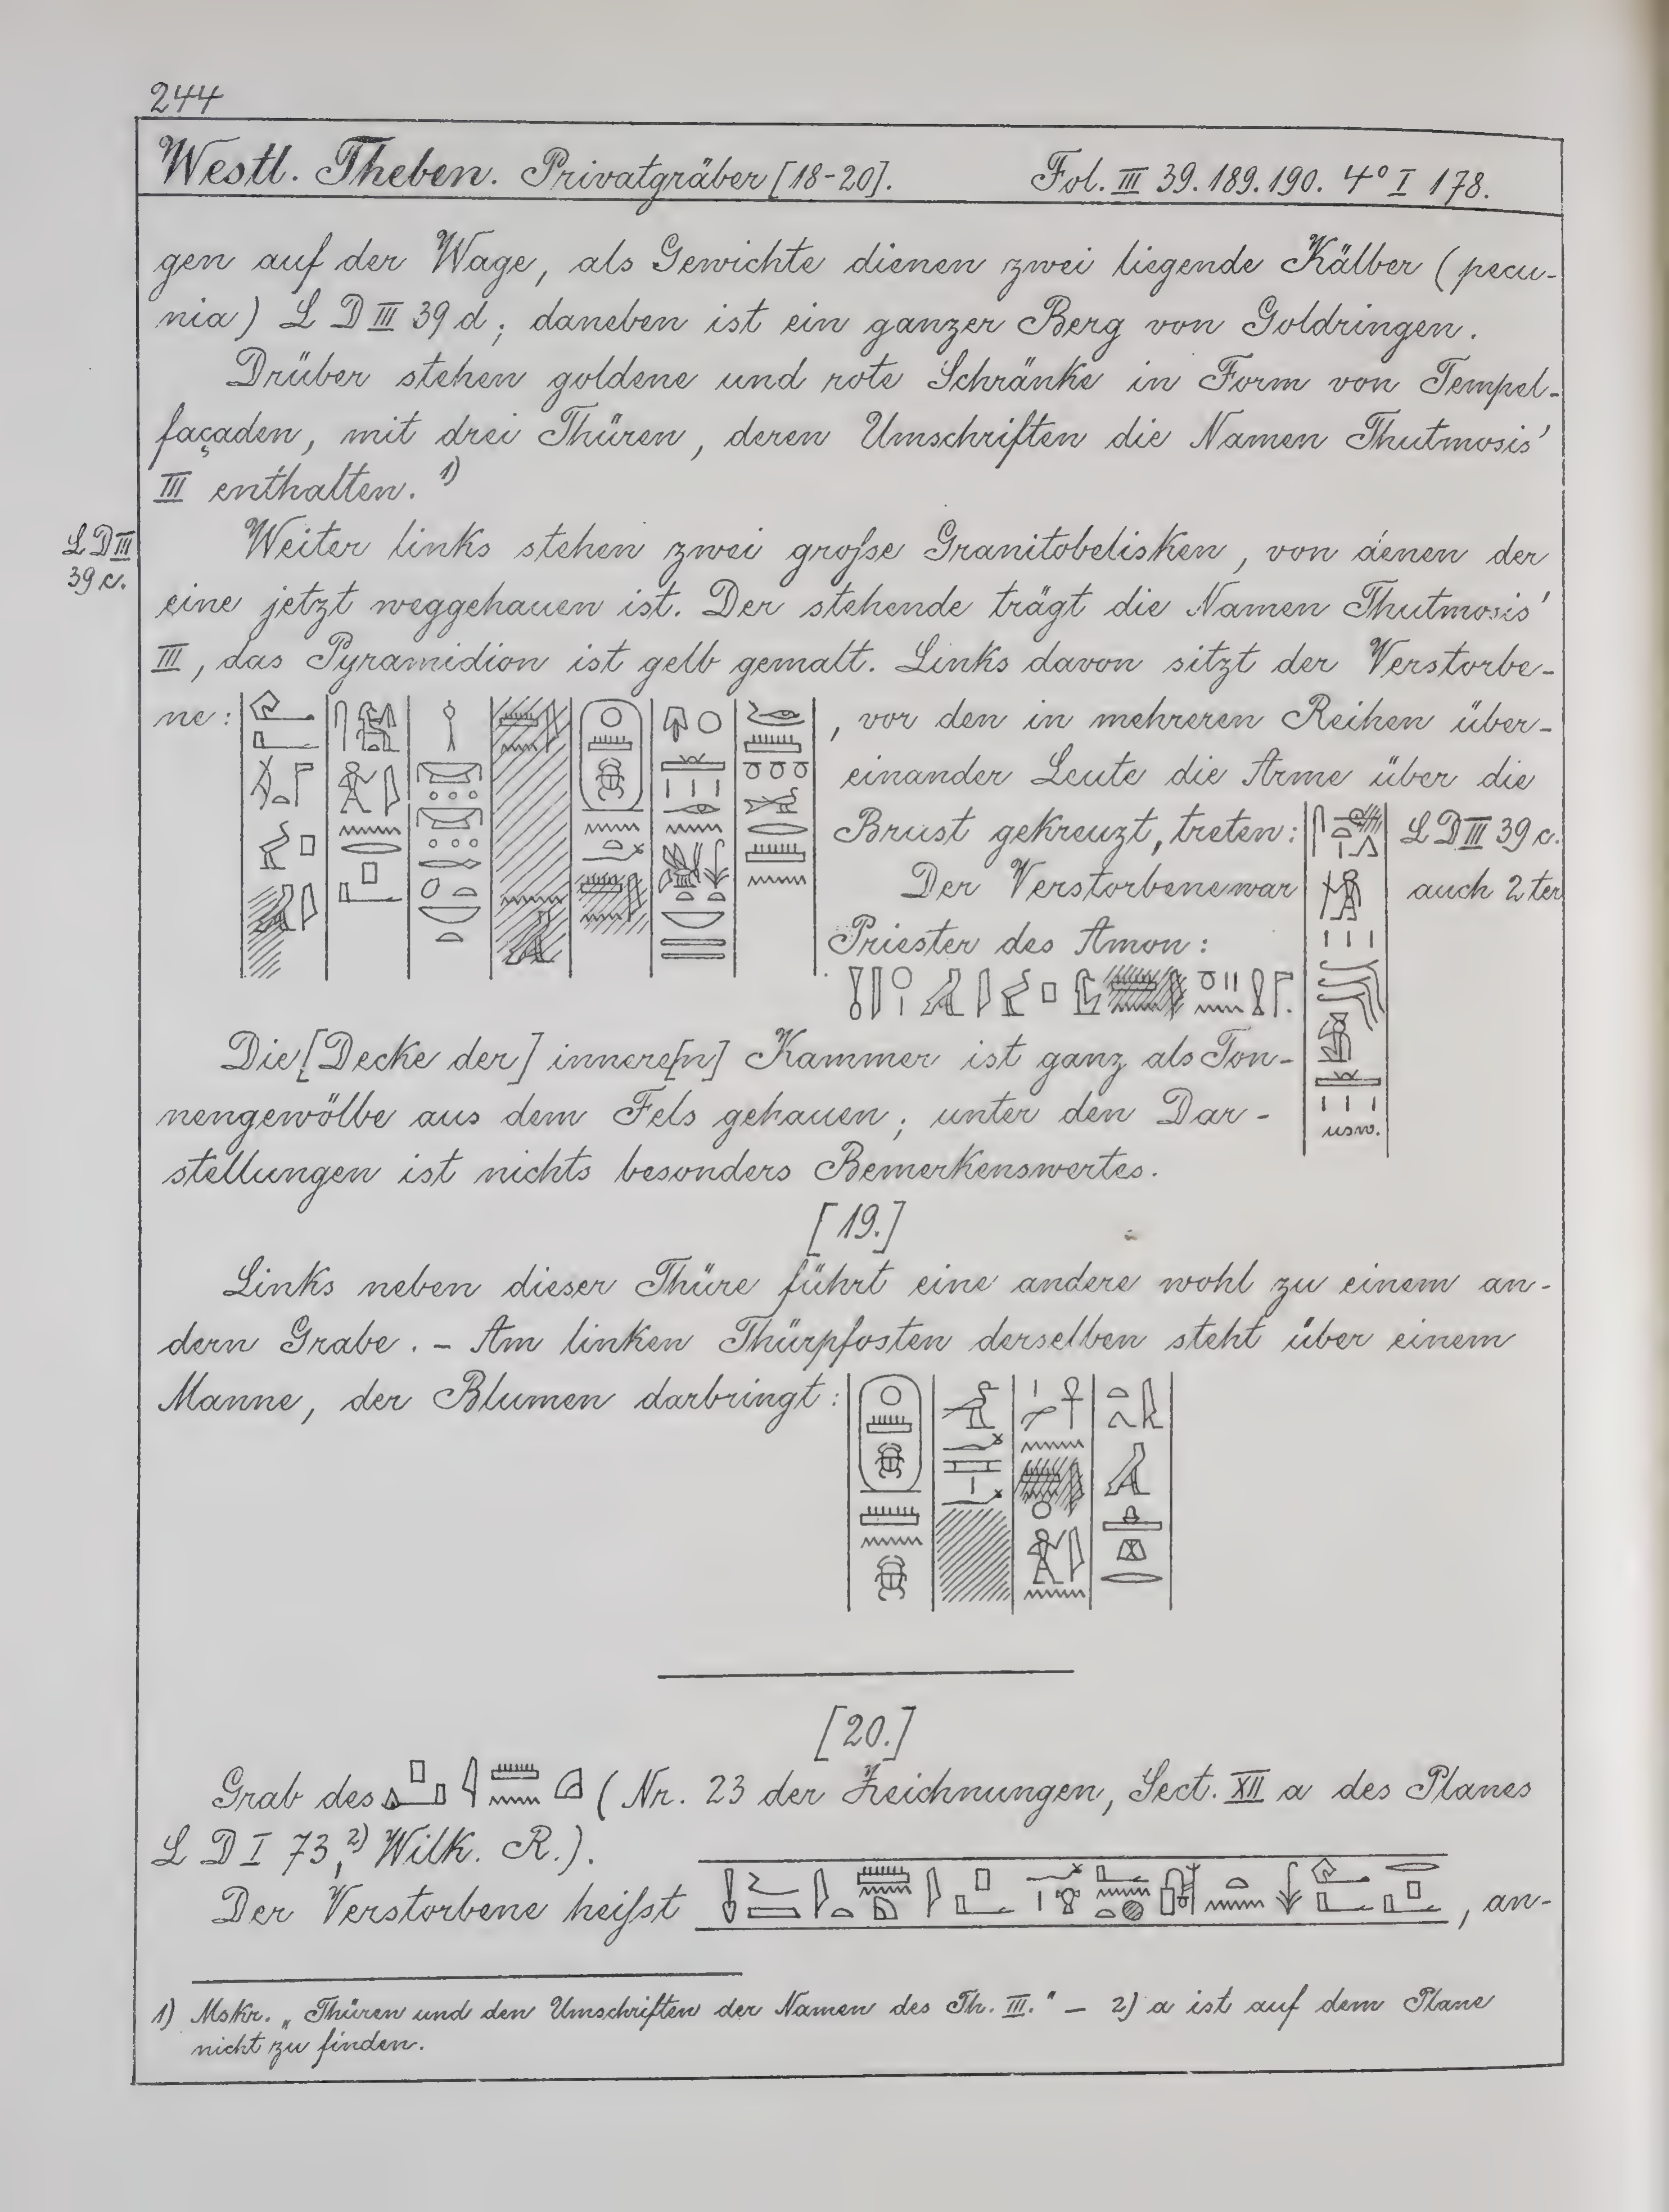 244
Westl. Theben. Privatgräber [18-20]. Fol. III 39. 189. 190. 4° I 178.
gen auf der Wage, als Gewichte dienen zwei liegende Kälber (pecu-
nia) L D III 39 d; daneben ist ein ganzer Berg von Goldringen.
Drüber stehen goldene und rote Schränke in Form von Tempel-
façaden, mit drei Thüren, deren Umschriften die Namen Thutmosis'
III enthalten. 1)
L D III
39 c.
Weiter links stehen zwei große Granitobelisken, von denen der
eine jetzt weggehauen ist. Der stehende trägt die Namen Thutmosis'
III, das Pyramidion ist gelb gemalt. Links davon sitzt der Verstorbe-
ne: , vor den in mehreren Reihen über-
einander Leute die Arme über die
Brust gekreuzt, treten: L D III 39 c.
Der Verstorbene war auch 2ter
Priester des Amon:
usw.
Die [Decke der] innere[n] Kammer ist ganz als Ton-
nengewölbe aus dem Fels gehauen; unter den Dar-
stellungen ist nichts besonders Bemerkenswertes.
[19.]
Links neben dieser Thüre führt eine andere wohl zu einem an-
dern Grabe. – Am linken Thürpfosten derselben steht über einem
Manne, der Blumen darbringt:
[20.]
Grab des (Nr. 23 der Zeichnungen, Sect. XII a des Planes
L D I 73, 2) Wilk. R.).
Der Verstorbene heißt , an-
1) Mskr. „Thüren und den Umschriften der Namen des Th. III." – 2) a ist auf dem Plane
nicht zu finden.